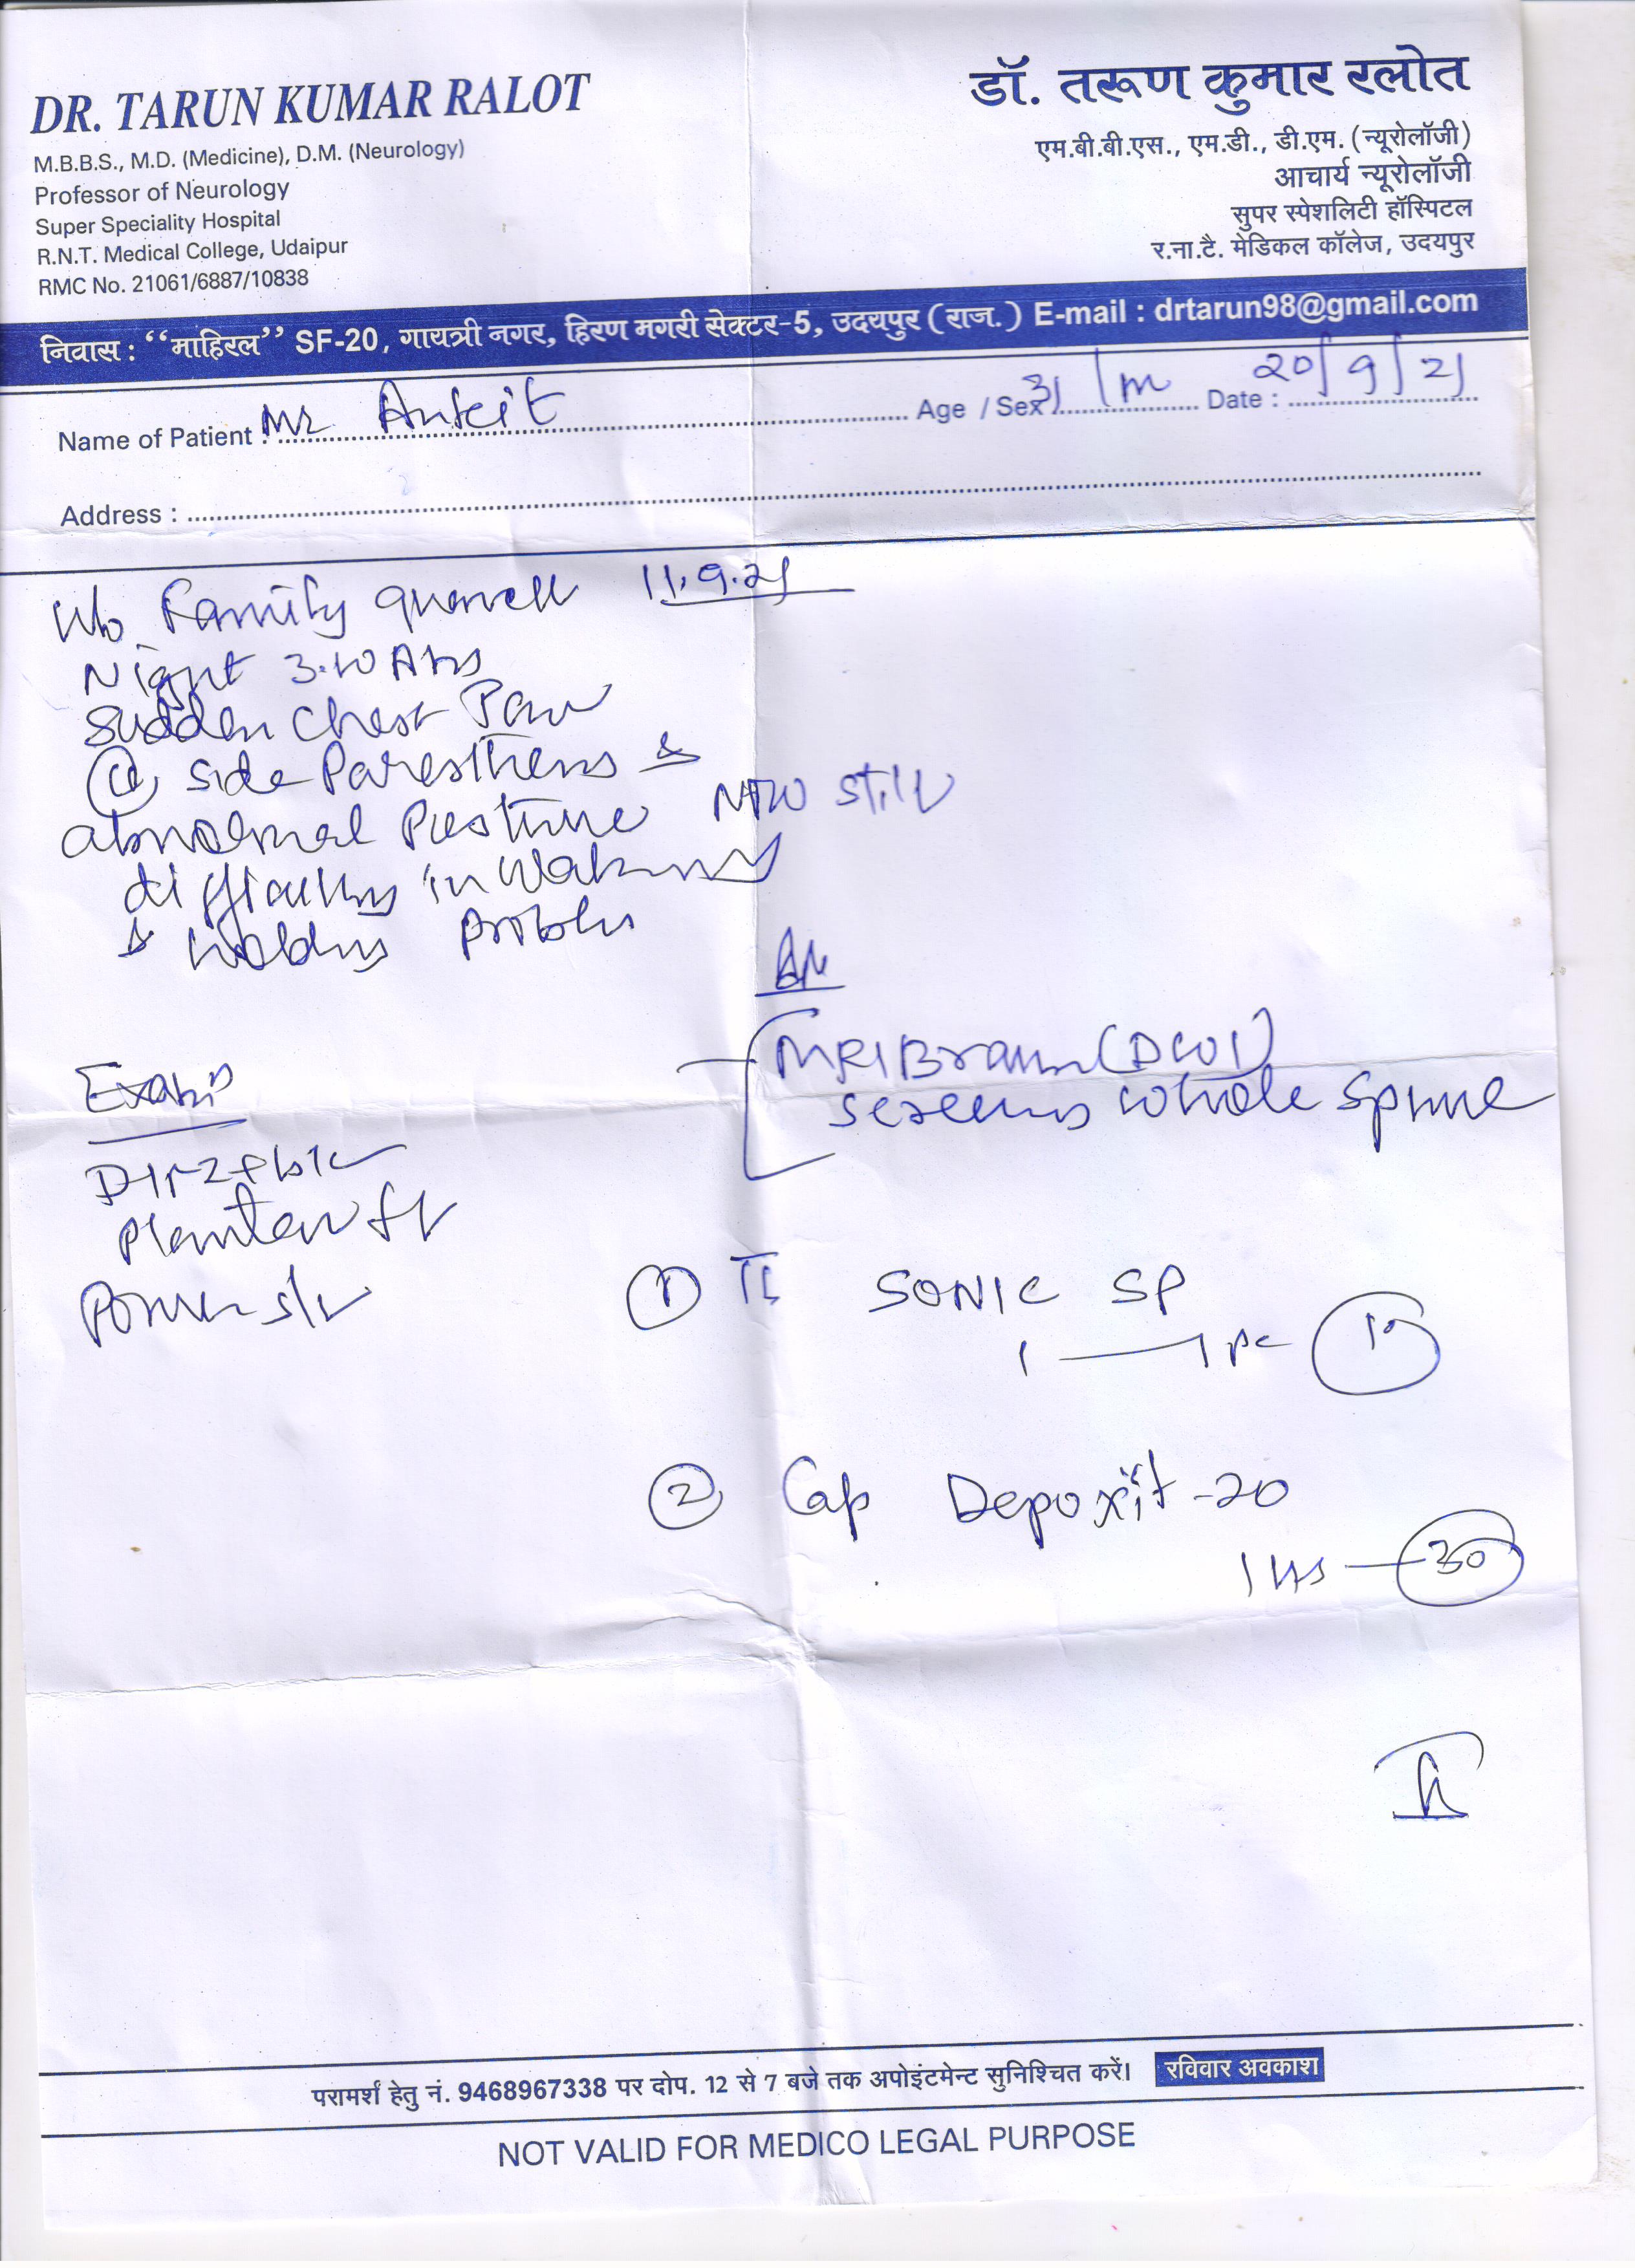 DR. TARUN KUMAR RALOT
M.B.B.S., M.D. (Medicine), D.M. (Neurology)
Professor of Neurology
Super Speciality Hospital
R.N.T. Medical College, Udaipur
RMC No. 21061/6887/10838
डॉ. तरूण कुमार रलोत
एम.बी.बी.एस., एम.डी., डी.एम. (न्यूरोलॉजी)
आचार्य न्यूरोलॉजी
सुपर स्पेशलिटी हॉस्पिटल
र.ना.टै. मेडिकल कॉलेज, उदयपुर
निवास : “माहिरल” SF-20, गायत्री नगर, हिरण मगरी सेक्टर-5, उदयपुर (राज.) E-mail : drtarun98@gmail.com
Name of Patient : Mr Ankit Age / Sex 31 / m Date : 20/9/21
Address :
Family quarrell 11.9.21
Night
Sudden Chest Pain
side Paresthens &
abnormal Posture still
difficulty in Walking
& holding problem
MRI Brain (DWI)
screening whole spine
Plantar
Power
① SONIC SP
1 — 1 pc
② Cap Depoxit-20
1 HS — 30
परामर्श हेतु नं. 9468967338 पर दोप. 12 से 7 बजे तक अपोइंटमेन्ट सुनिश्चित करें। रविवार अवकाश
NOT VALID FOR MEDICO LEGAL PURPOSE